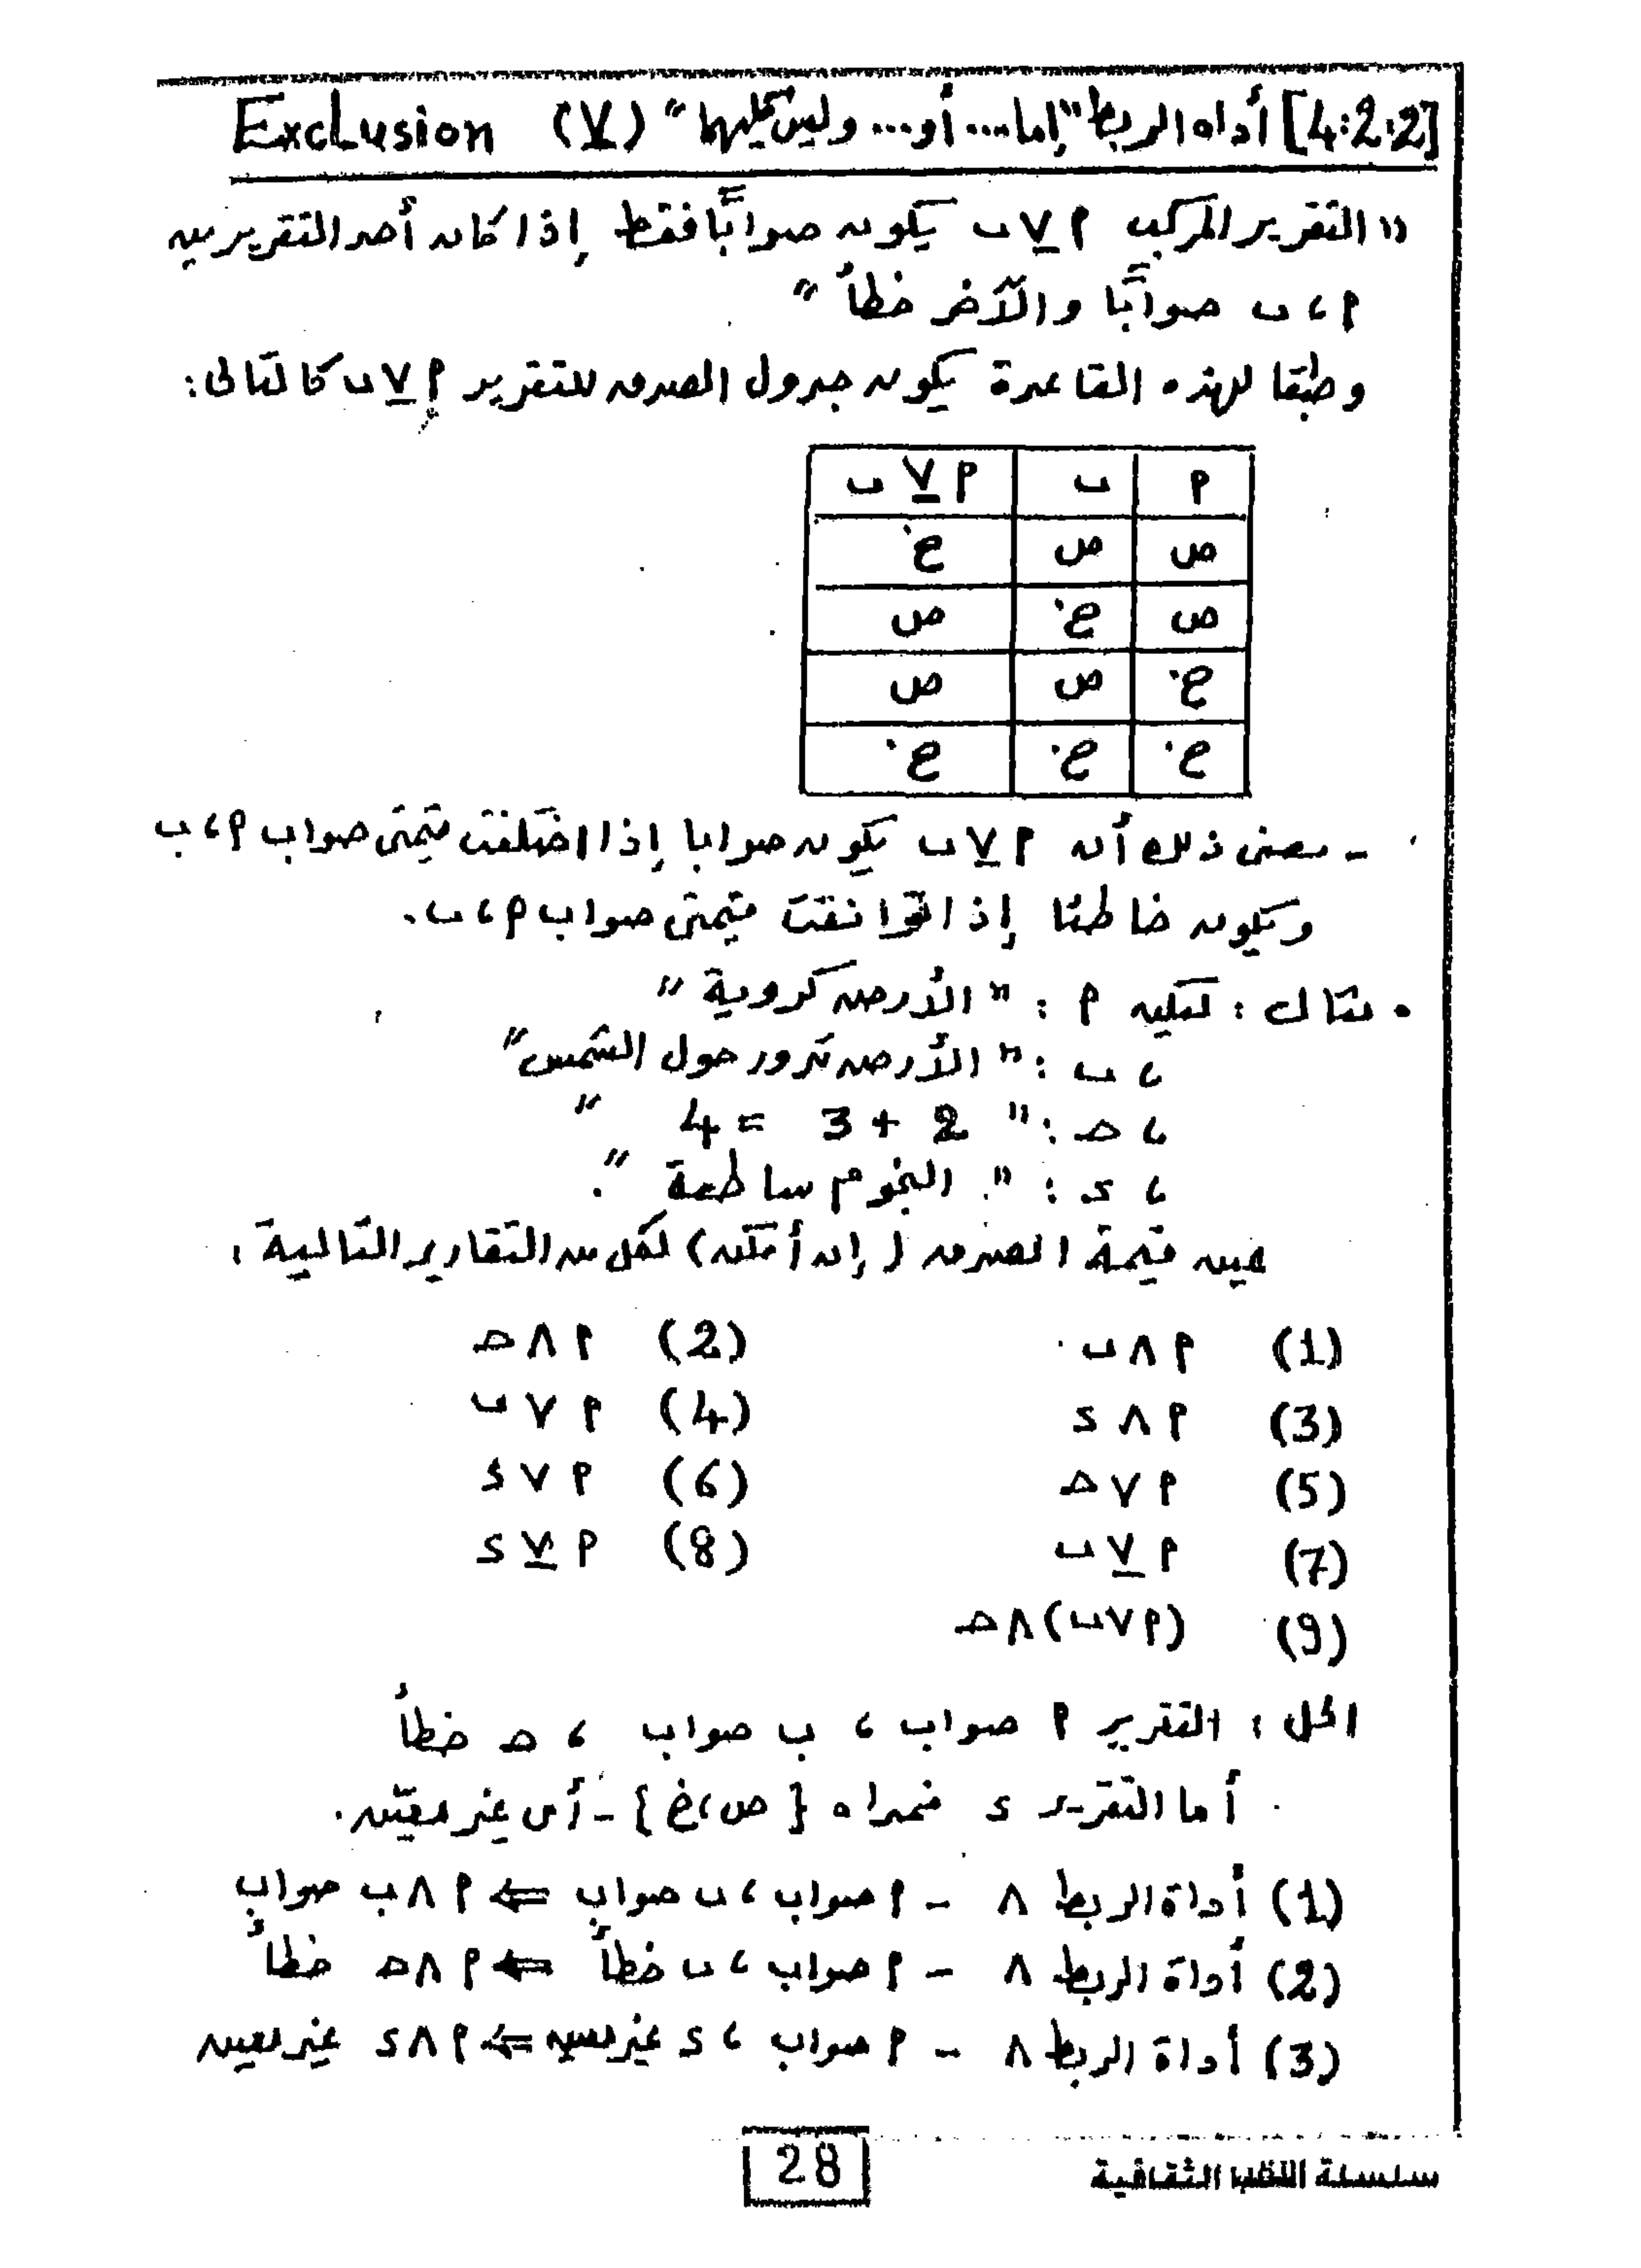 [4:2:2] أداه الربط "إما... أو... وليس كليهما" (⊻) Exclusion
"التقرير المركب P ⊻ ب يكون صوابًا فقط إذا كان أحد التقريرين
P ، ب صوابًا والآخر خطأ"
وطبقا لهذه القاعدة يكون جدول الصدق للتقرير P ⊻ ب كالتالى:
P ب P ⊻ ب
ص ص خ
ص خ ص
خ ص ص
خ خ خ
- معنى ذلك أن P ⊻ ب يكون صوابا إذا اختلفت قيمتى صواب P ، ب
ويكون خاطئا إذا اتفقت قيمتى صواب P ، ب.
• مثال : لتكن P : "الأرض كروية"
، ب : "الأرض تدور حول الشمس"
، حـ : " 2 + 3 = 4 "
، د : " النجوم ساطعة ".
عين قيمة الصدق (إن أمكن) لكل من التقارير التالية :
(1) P ∧ ب (2) P ∧ حـ
(3) P ∧ د (4) P ∨ ب
(5) P ∨ حـ (6) P ∨ د
(7) P ⊻ ب (8) P ⊻ د
(9) (P ∨ ب) ∧ حـ
الحل : التقرير P صواب ، ب صواب ، حـ خطأ
أما التقرير د {ص ، خ} - أى غير معين.
(1) أداة الربط ∧ - P صواب ، ب صواب ⇐ P ∧ ب صواب
(2) أداة الربط ∧ - P صواب ، ب خطأ ⇐ P ∧ حـ خطأ
(3) أداة الربط ∧ - P صواب ، د غير معين ⇐ P ∧ د غير معين
28
سلسلة الثقافية